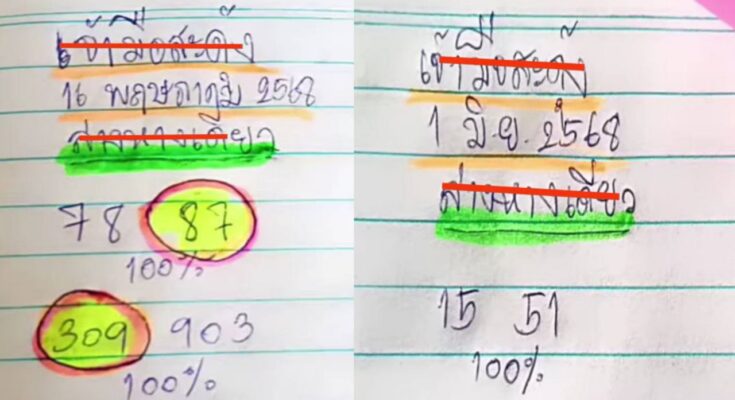 เจ้ามือสะดุ้ง
16 พฤษภาคม 2568
สายทางเดียว
78 87
100%
309 903
100%
เจ้ามือสะดุ้ง
1 มิ.ย. 2568
สายทางเดียว
15 51
100%